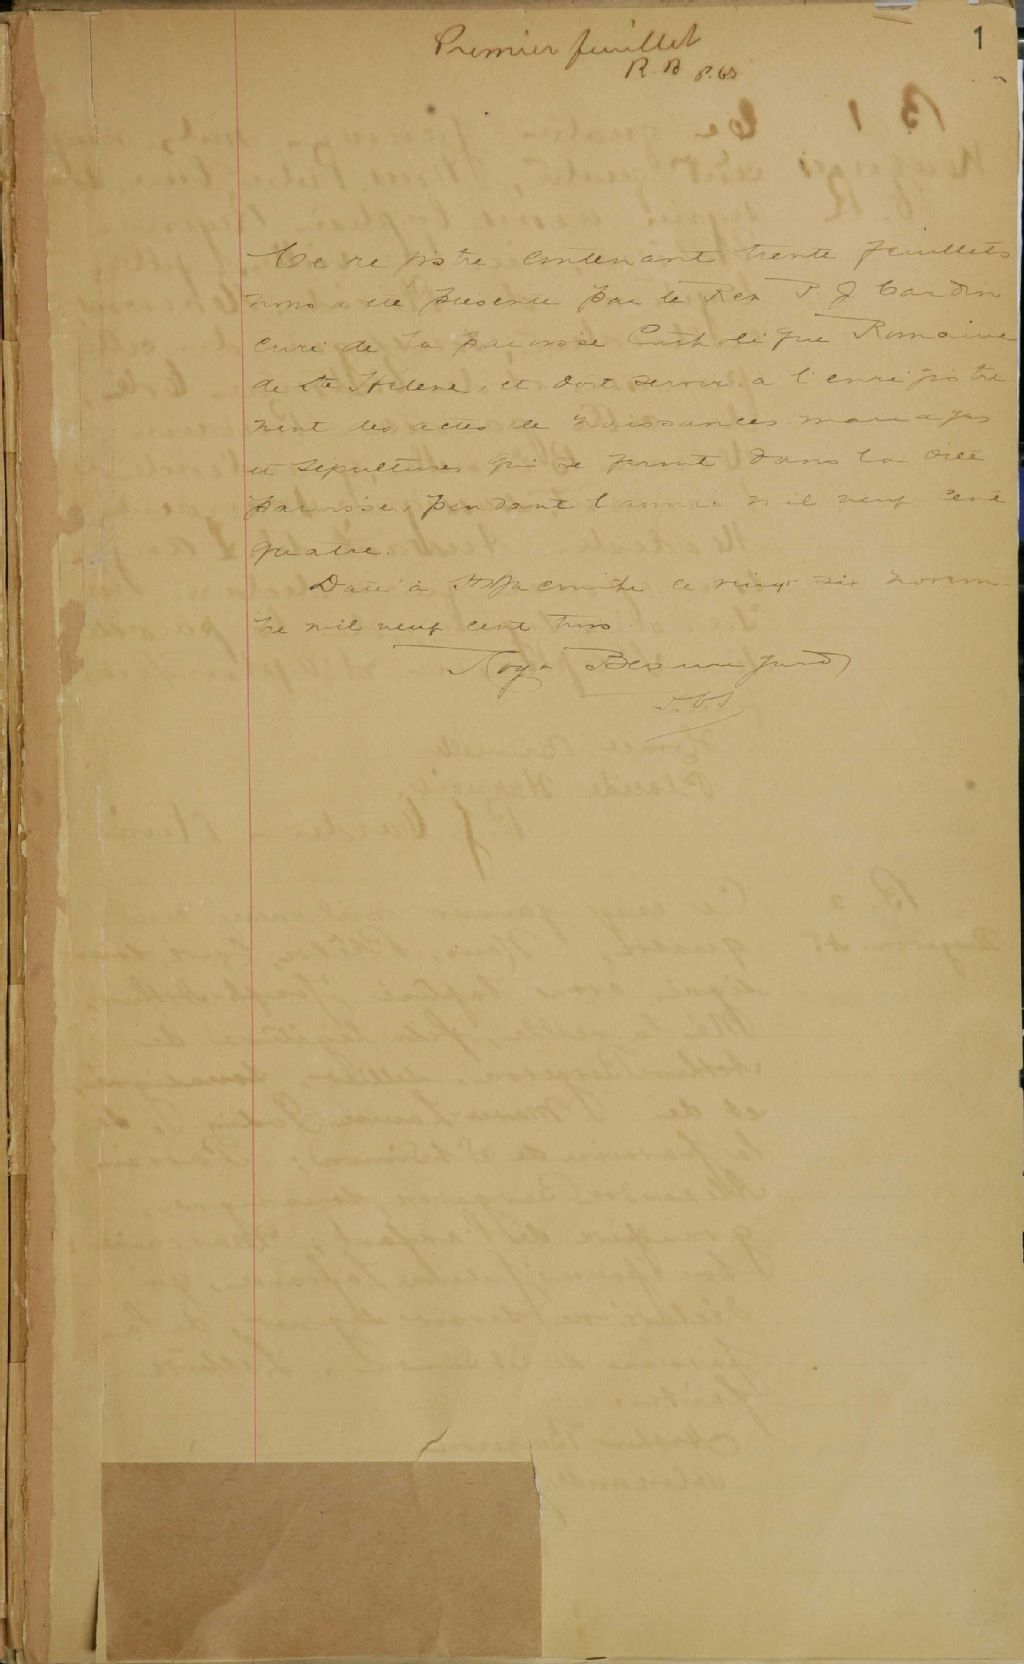 Premier feuillet
1
R. B P.C.S
Ce registre contenant trente feuillets
nous a été présenté par le Rev P. J. Cardin
curé de la paroisse Catholique Romaine
de Ste Hélène, et doit servir à l'enregistre
ment des actes de naissances mariages
et sépultures qui se feront dans la dite
paroisse, pendant l'année mil neuf cent
quatre.
Daté à St Hyacinthe ce vingt six novem-
bre mil neuf cent trois.
Roy & Beauregard
P.C.S